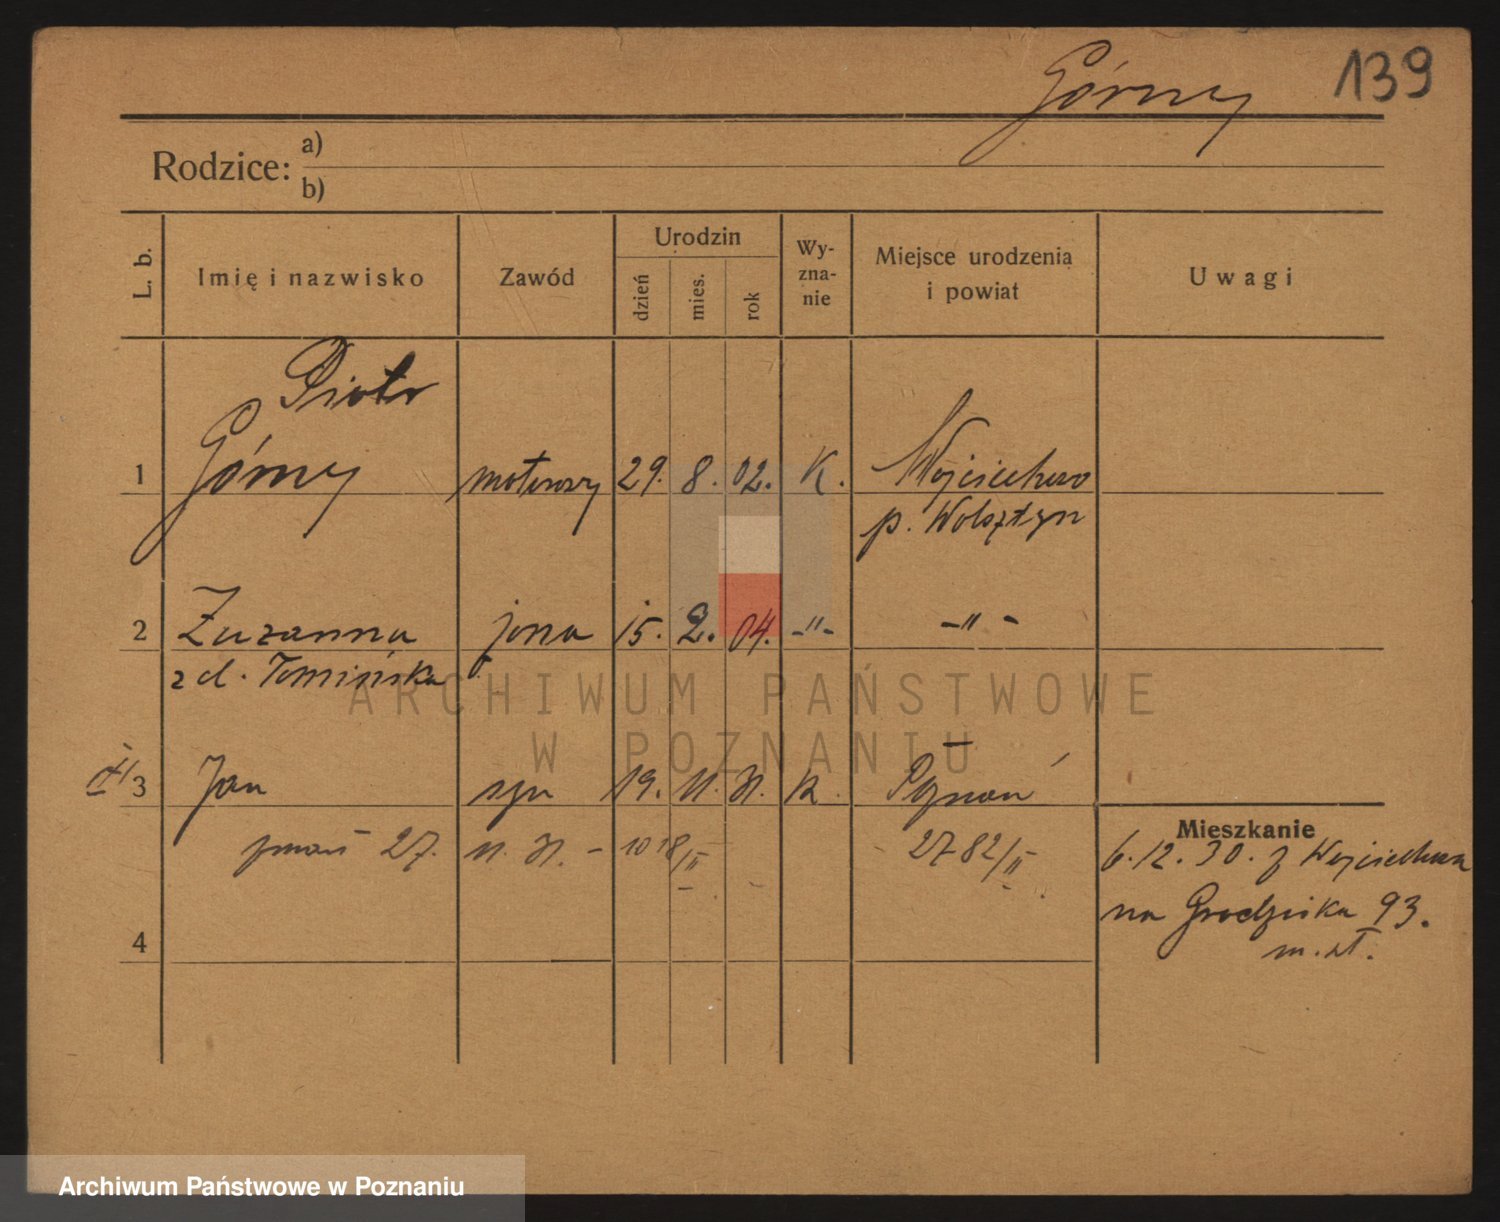 Górny 139
Rodzice: a)
b)
L. b.
Imię i nazwisko
Zawód
Urodzin
dzień
mies.
rok
Wy-
zna-
nie
Miejsce urodzenia
i powiat
Uwagi
Piotr
1 Górny motorowy 29. 8. 02. K. Wojciechowo
p. Wolsztyn
2 Zuzanna żona 15. 2. 04. -"- -"-
z d. Tomińska
3 Jan syn 19. 11. 31. K. Poznań
zmarł 27. 11. 31. - 1018/II 2782/II
Mieszkanie
6.12.30. z Wojciechowa
na Grodziska 93.
4
ARCHIWUM PAŃSTWOWE
W POZNANIU
Archiwum Państwowe w Poznaniu